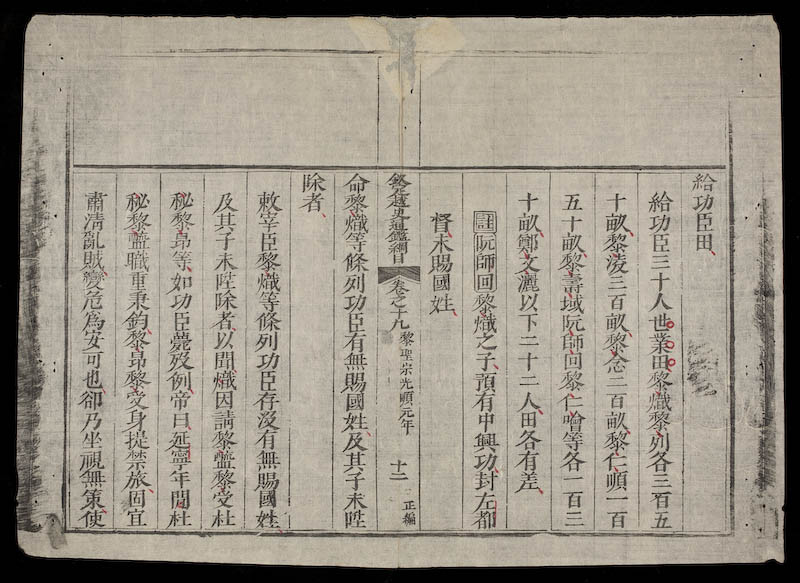 給功臣田
給功臣三十人世業田黎熾黎列各三百五
十畝黎淩三百畝黎念二百畝黎仁順一百
五十畝黎壽域阮師回黎仁噲等各一百三
十畝鄭文灑以下二十二人田各有差
註阮師回黎熾之子預有中興功封左都
督未賜國姓
欽定越史通鑑綱目 卷之十九 黎聖宗光順元年 十二 正編
命黎熾等條列功臣有無賜國姓及其子未陞
除者
敕宰臣黎熾等條列功臣存沒有無賜國姓
及其子未陞除者以聞熾因請黎黎受杜
秘黎昂等如功臣薨歿例帝曰延寧年間杜
秘黎職重秉鈞黎昂黎受身提禁旅固宜
肅清亂賊變危為安可也卻乃坐視無策使